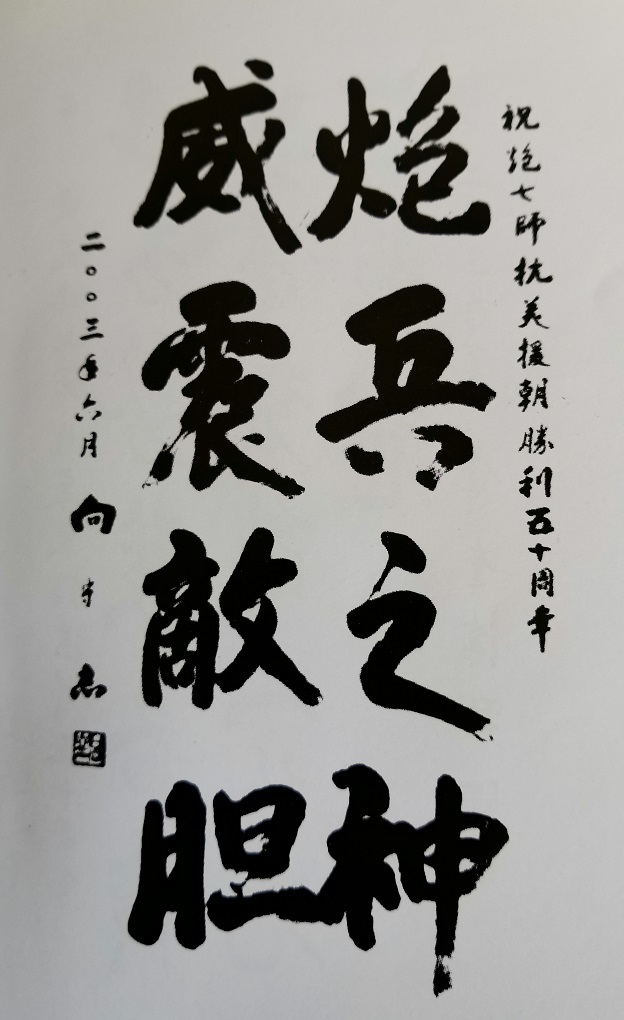 祝炮七师抗美援朝勝利五十周年
炮兵之神
威震敵胆
二〇〇三年六月 向守志